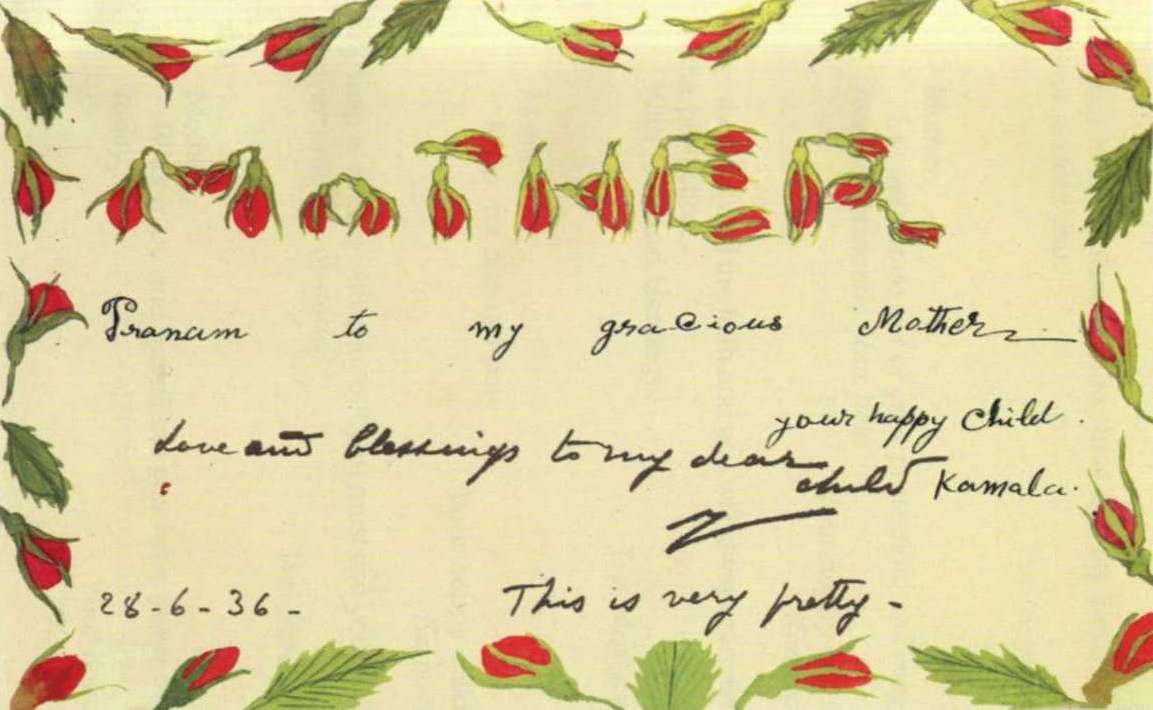 MOTHER
Pranam to my gracious Mother
your happy Child.
Love and blessings to my dear child
Kamala.
28-6-36-
This is very pretty-